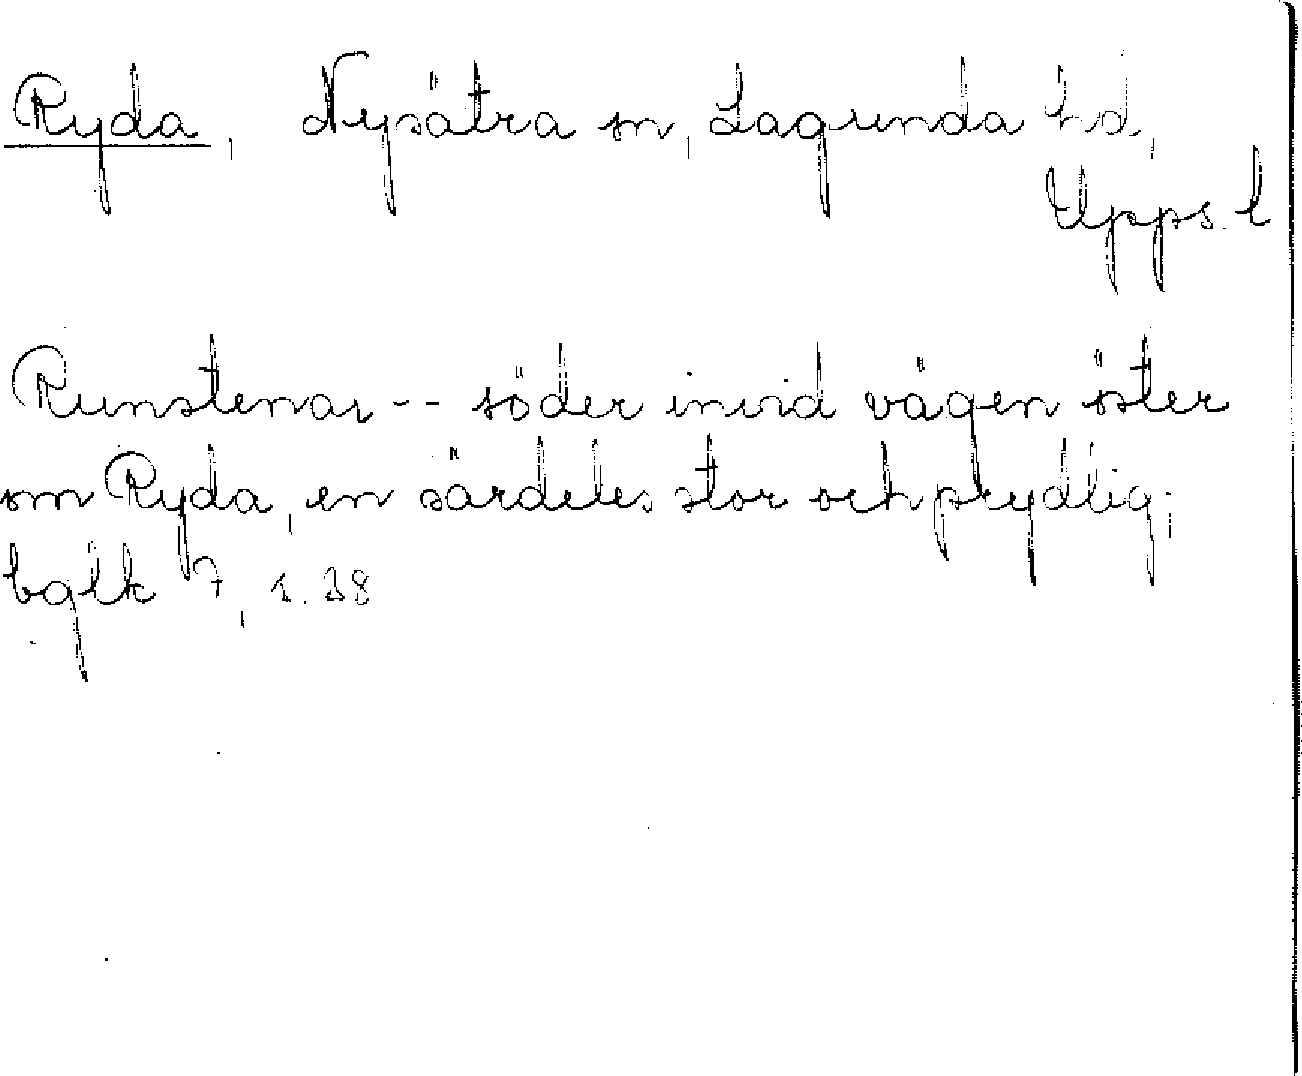 Ryda, Nysätra sn, Lagunda hd,
Upps. l
Runstenar -- söder invid vägen öster
om Ryda, en särdeles stor och prydlig;
bglk 7, s. 38